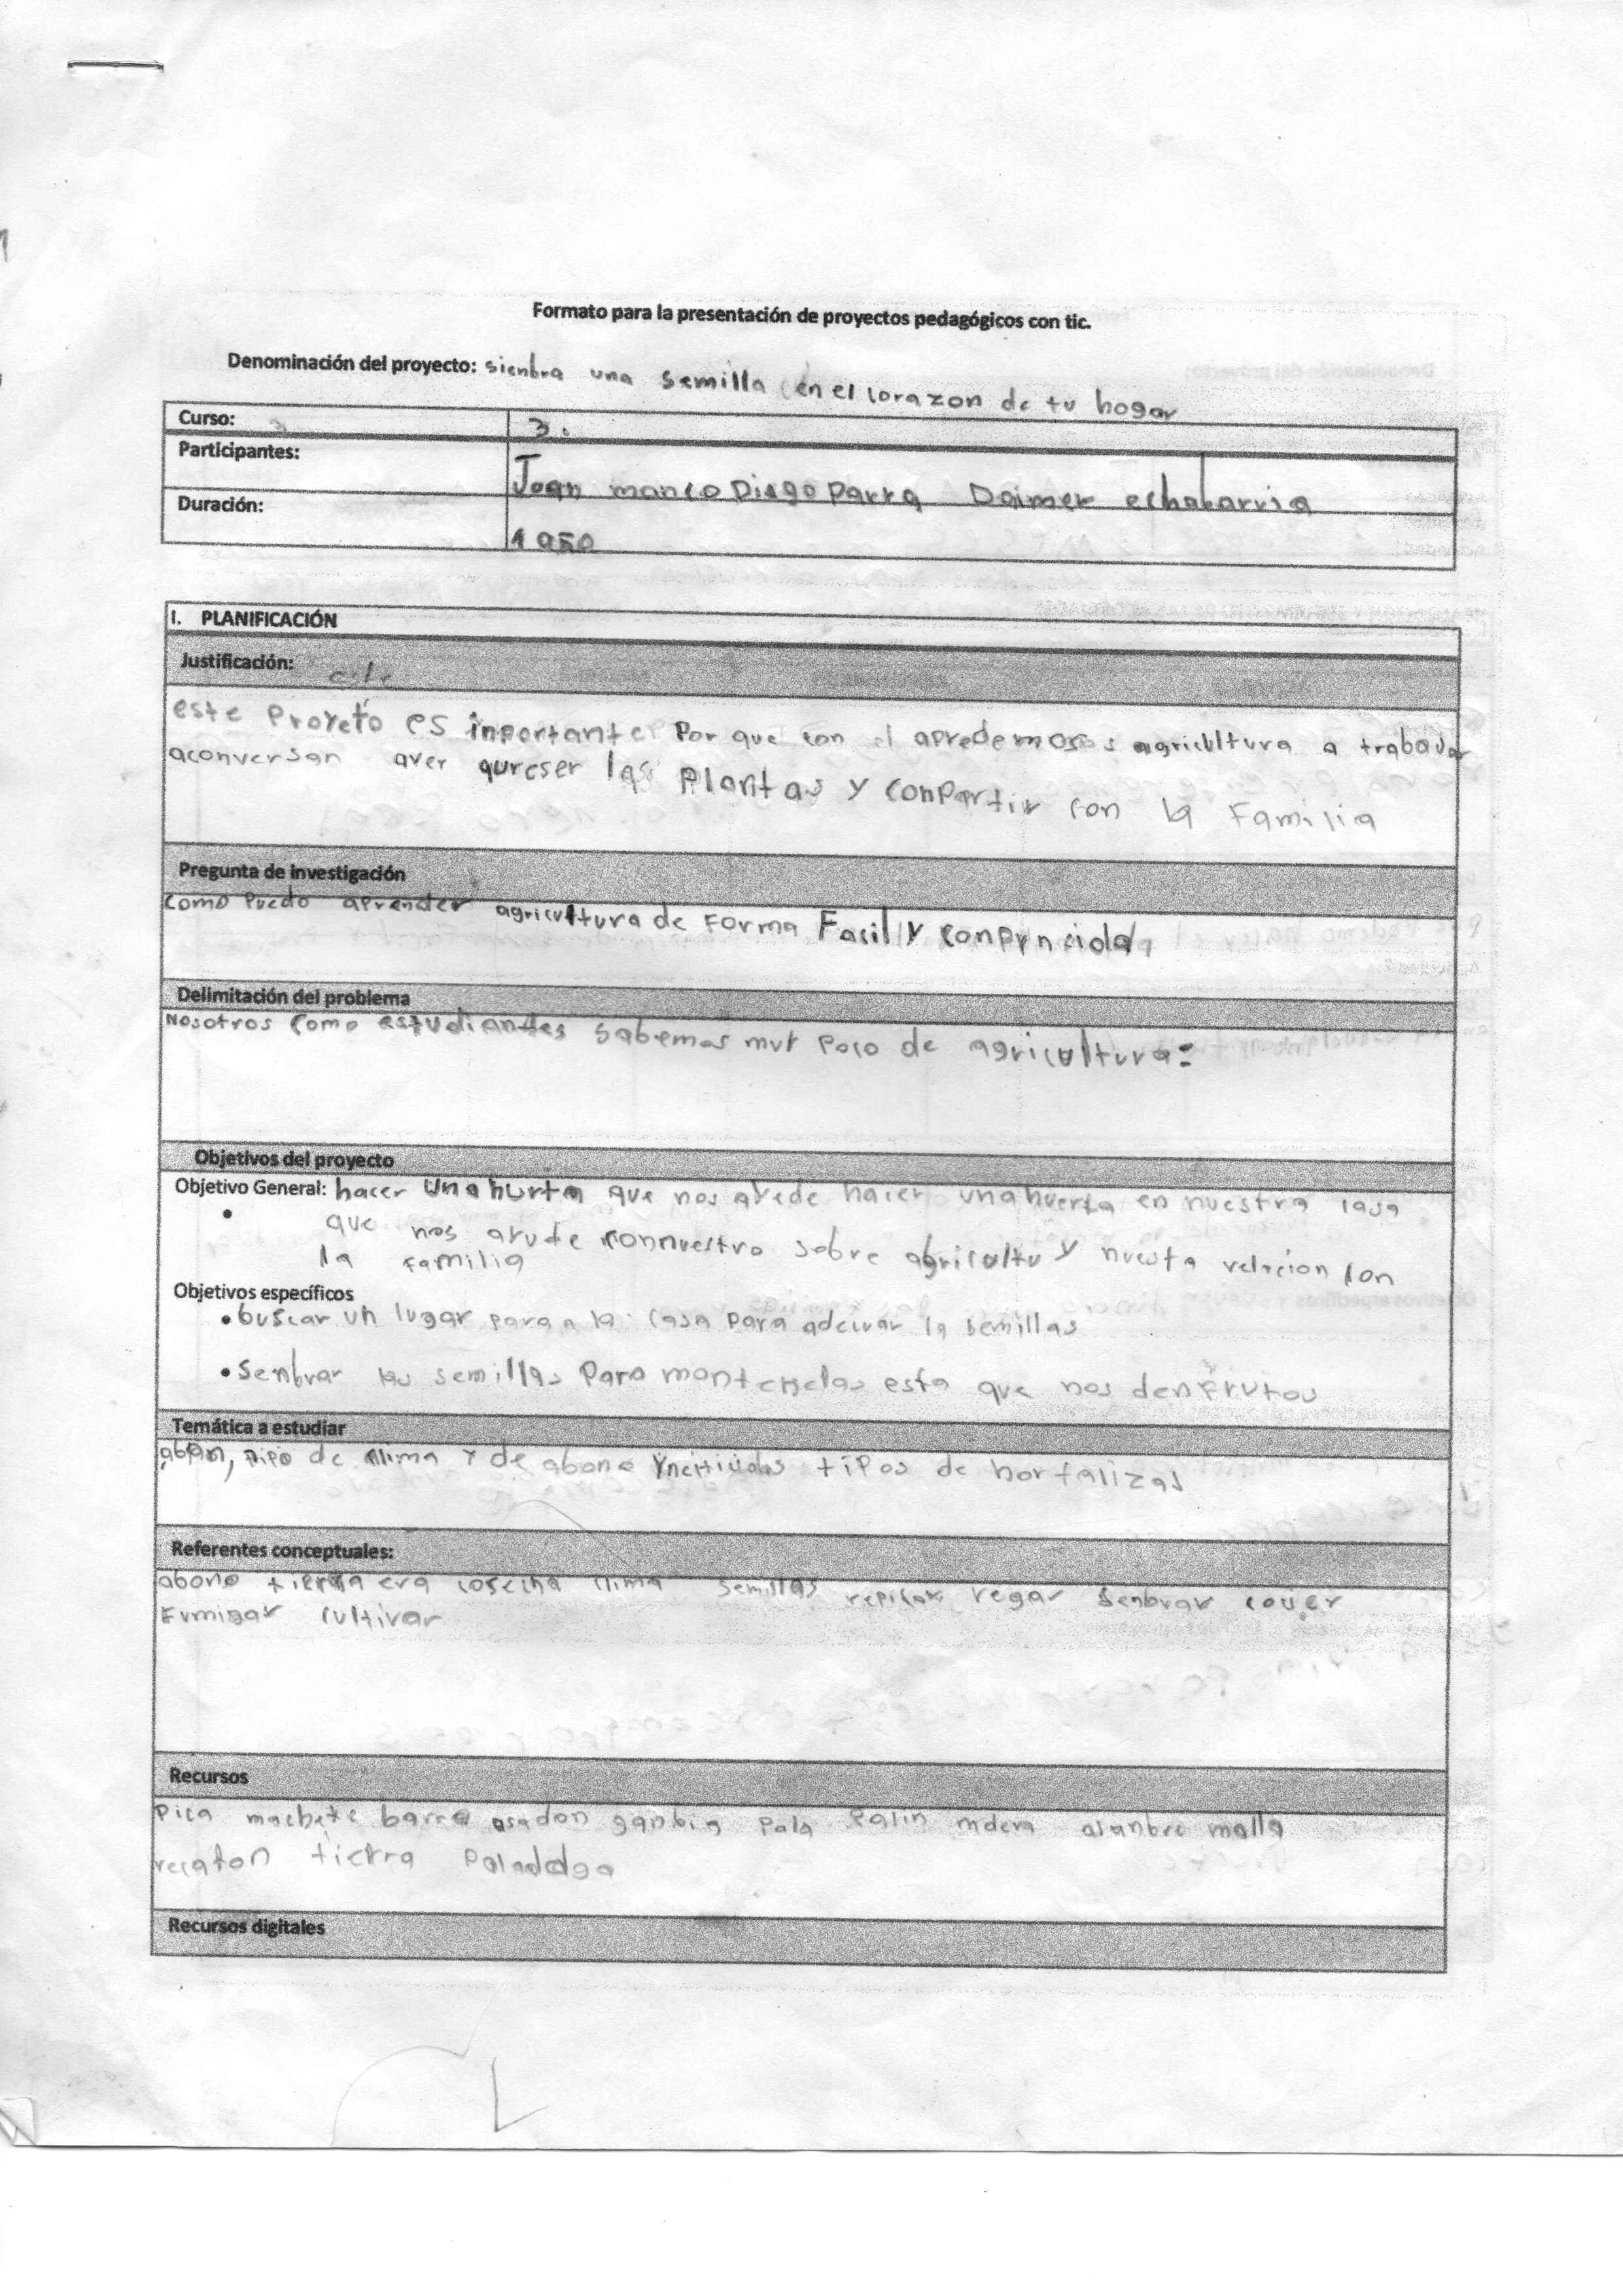 Formato para la presentación de proyectos pedagógicos con tic.
Denominación del proyecto: sienbra una semilla en el corazon de tu hogar
Curso: 3.
Participantes: Joan manco Diego Parra Daimer echabarria
Duración: 1950
I. PLANIFICACIÓN
Justificación:
este Proyeto es inportante Por que con el apredemos agricultura a trabajar
aconversar aver qureser las Plantas y conpartir con la Familia
Pregunta de investigación
como Puedo aprender agricultura de Forma Facil y
Delimitación del problema
Nosotros como estudiantes sabemos muy poco de agricultura
Objetivos del proyecto
Objetivo General: hacer una hurta que nos ayede hacer una huerta en nuestra casa
que nos ayude connuestro sobre agricultu y nuesta relacion con
la Familia
Objetivos específicos
• buscar un lugar para la casa para adecuar la semillas
• Senbrar las semillas Para montenelas esta que nos den Frutos
Temática a estudiar
abon, tipo de clima y de abono tipos de hortalizas
Referentes conceptuales:
abono tierra era cosecha clima semillas repicar regar Senbrar
Fumigar cultivar
Recursos
Pica machete barra asadon ganbia Pala Palin mdera alanbre malla
recaton tierra
Recursos digitales